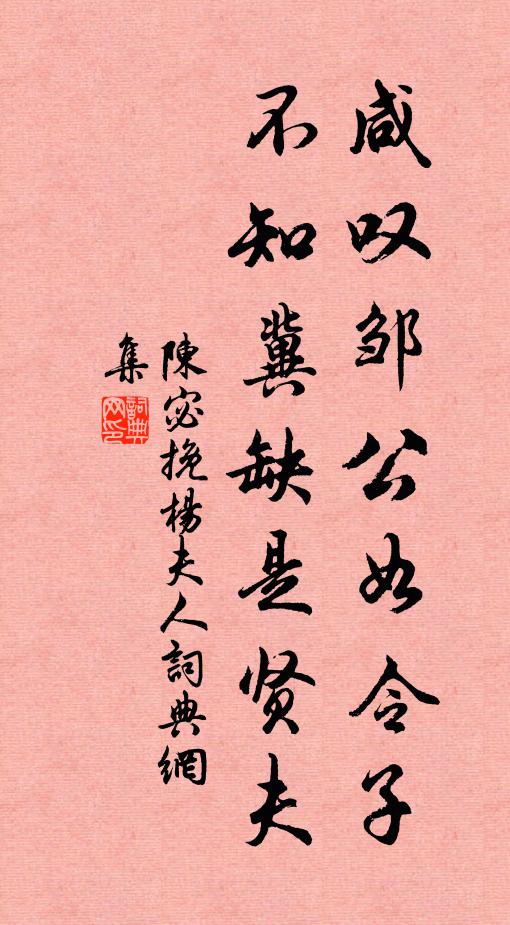 咸叹邹公如令子
不知冀缺是贤夫
陳宓挽楊夫人詞典網
集
詞典网印